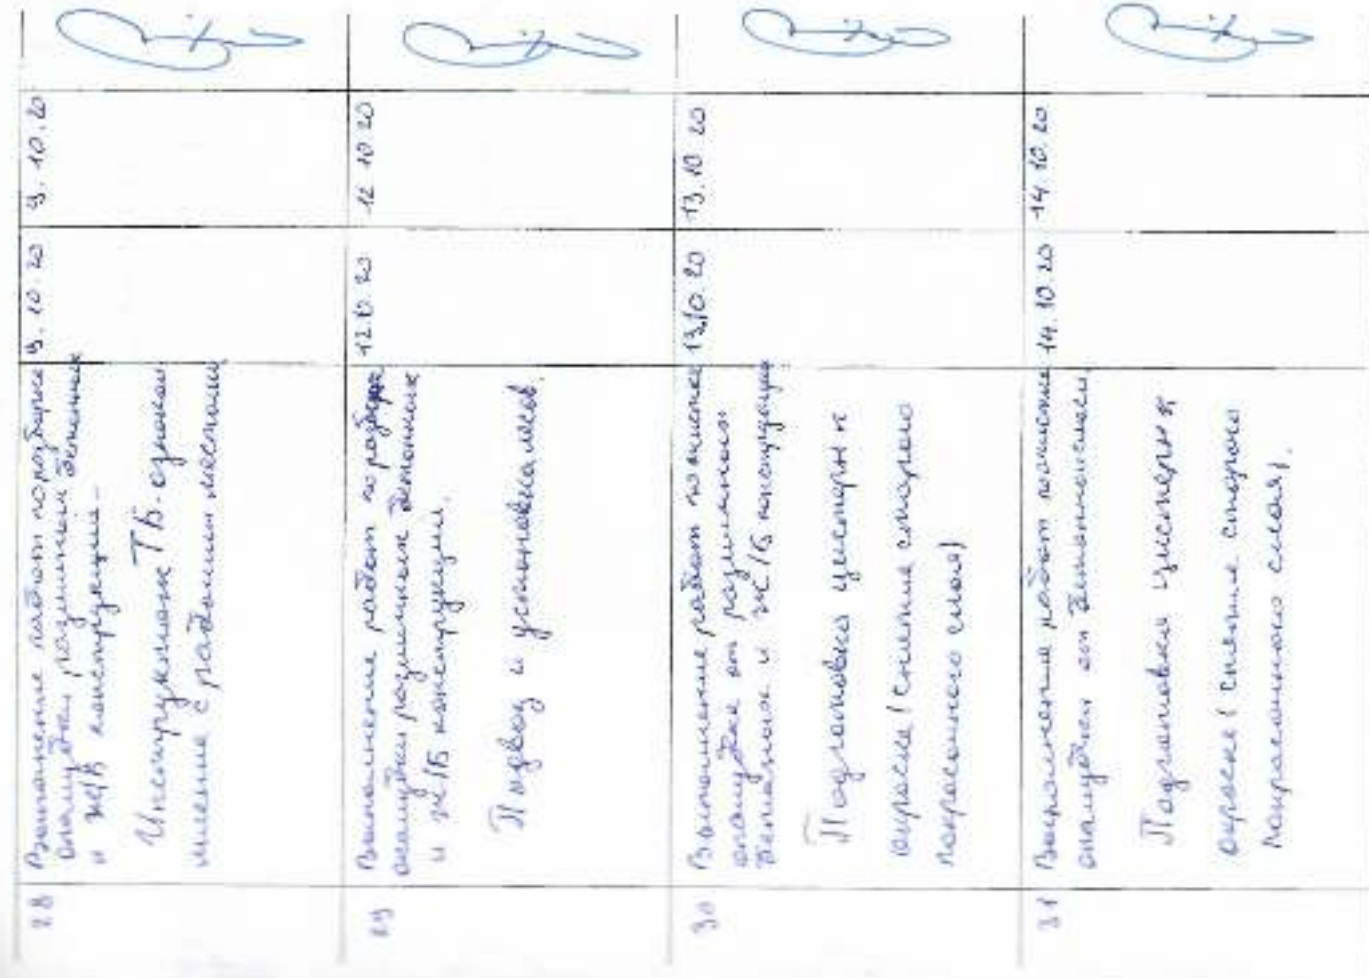 28
Выполнение работ по разборке
опалубки различных бетонных
и ж/б конструкций
Инструктаж ТБ - ознаком
мление с рабочими местами
9.10.20
9.10.20
29
Выполнение работ по разборке
опалубки различных бетонных
и ж/б конструкций.
Подвоз и установка лесов.
12.10.20
12.10.20
30
Выполнение работ по очистке
опалубки от различных
бетонных и ж/б конструкций
Подготовка цистерн к
окраске (снятие старого
покрасочного слоя)
13.10.20
13.10.20
31
Выполнение работ по очистке
опалубки от бетонной смеси.
Подготовка цистерн к
окраске (снятие старого
покрасочного слоя).
14.10.20
14.10.20